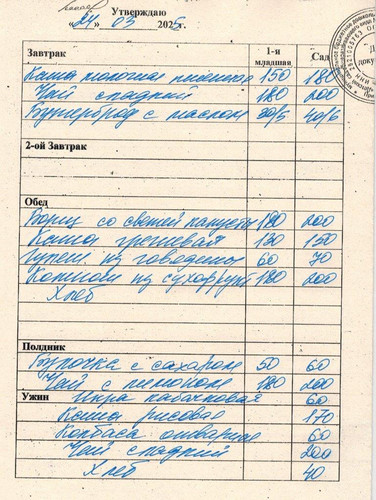 Утверждаю
24 03 2025г.
Завтрак 1-я младшая Сад
Каша молочная пшенная 150 180
Чай сладкий 180 200
Бутерброд с маслом 30/5 40/5
2-ой Завтрак
Обед
Борщ со свежей капусты 180 200
Каша гречневая 130 150
Гуляш из говядины 60 70
Компот из сухофрукт 180 200
Хлеб
Полдник
Булочка с сахаром 50 60
Чай с лимоном 180 200
Ужин Икра кабачковая 60
Каша рисовая 170
Колбаса отварная 60
Чай сладкий 200
Хлеб 40